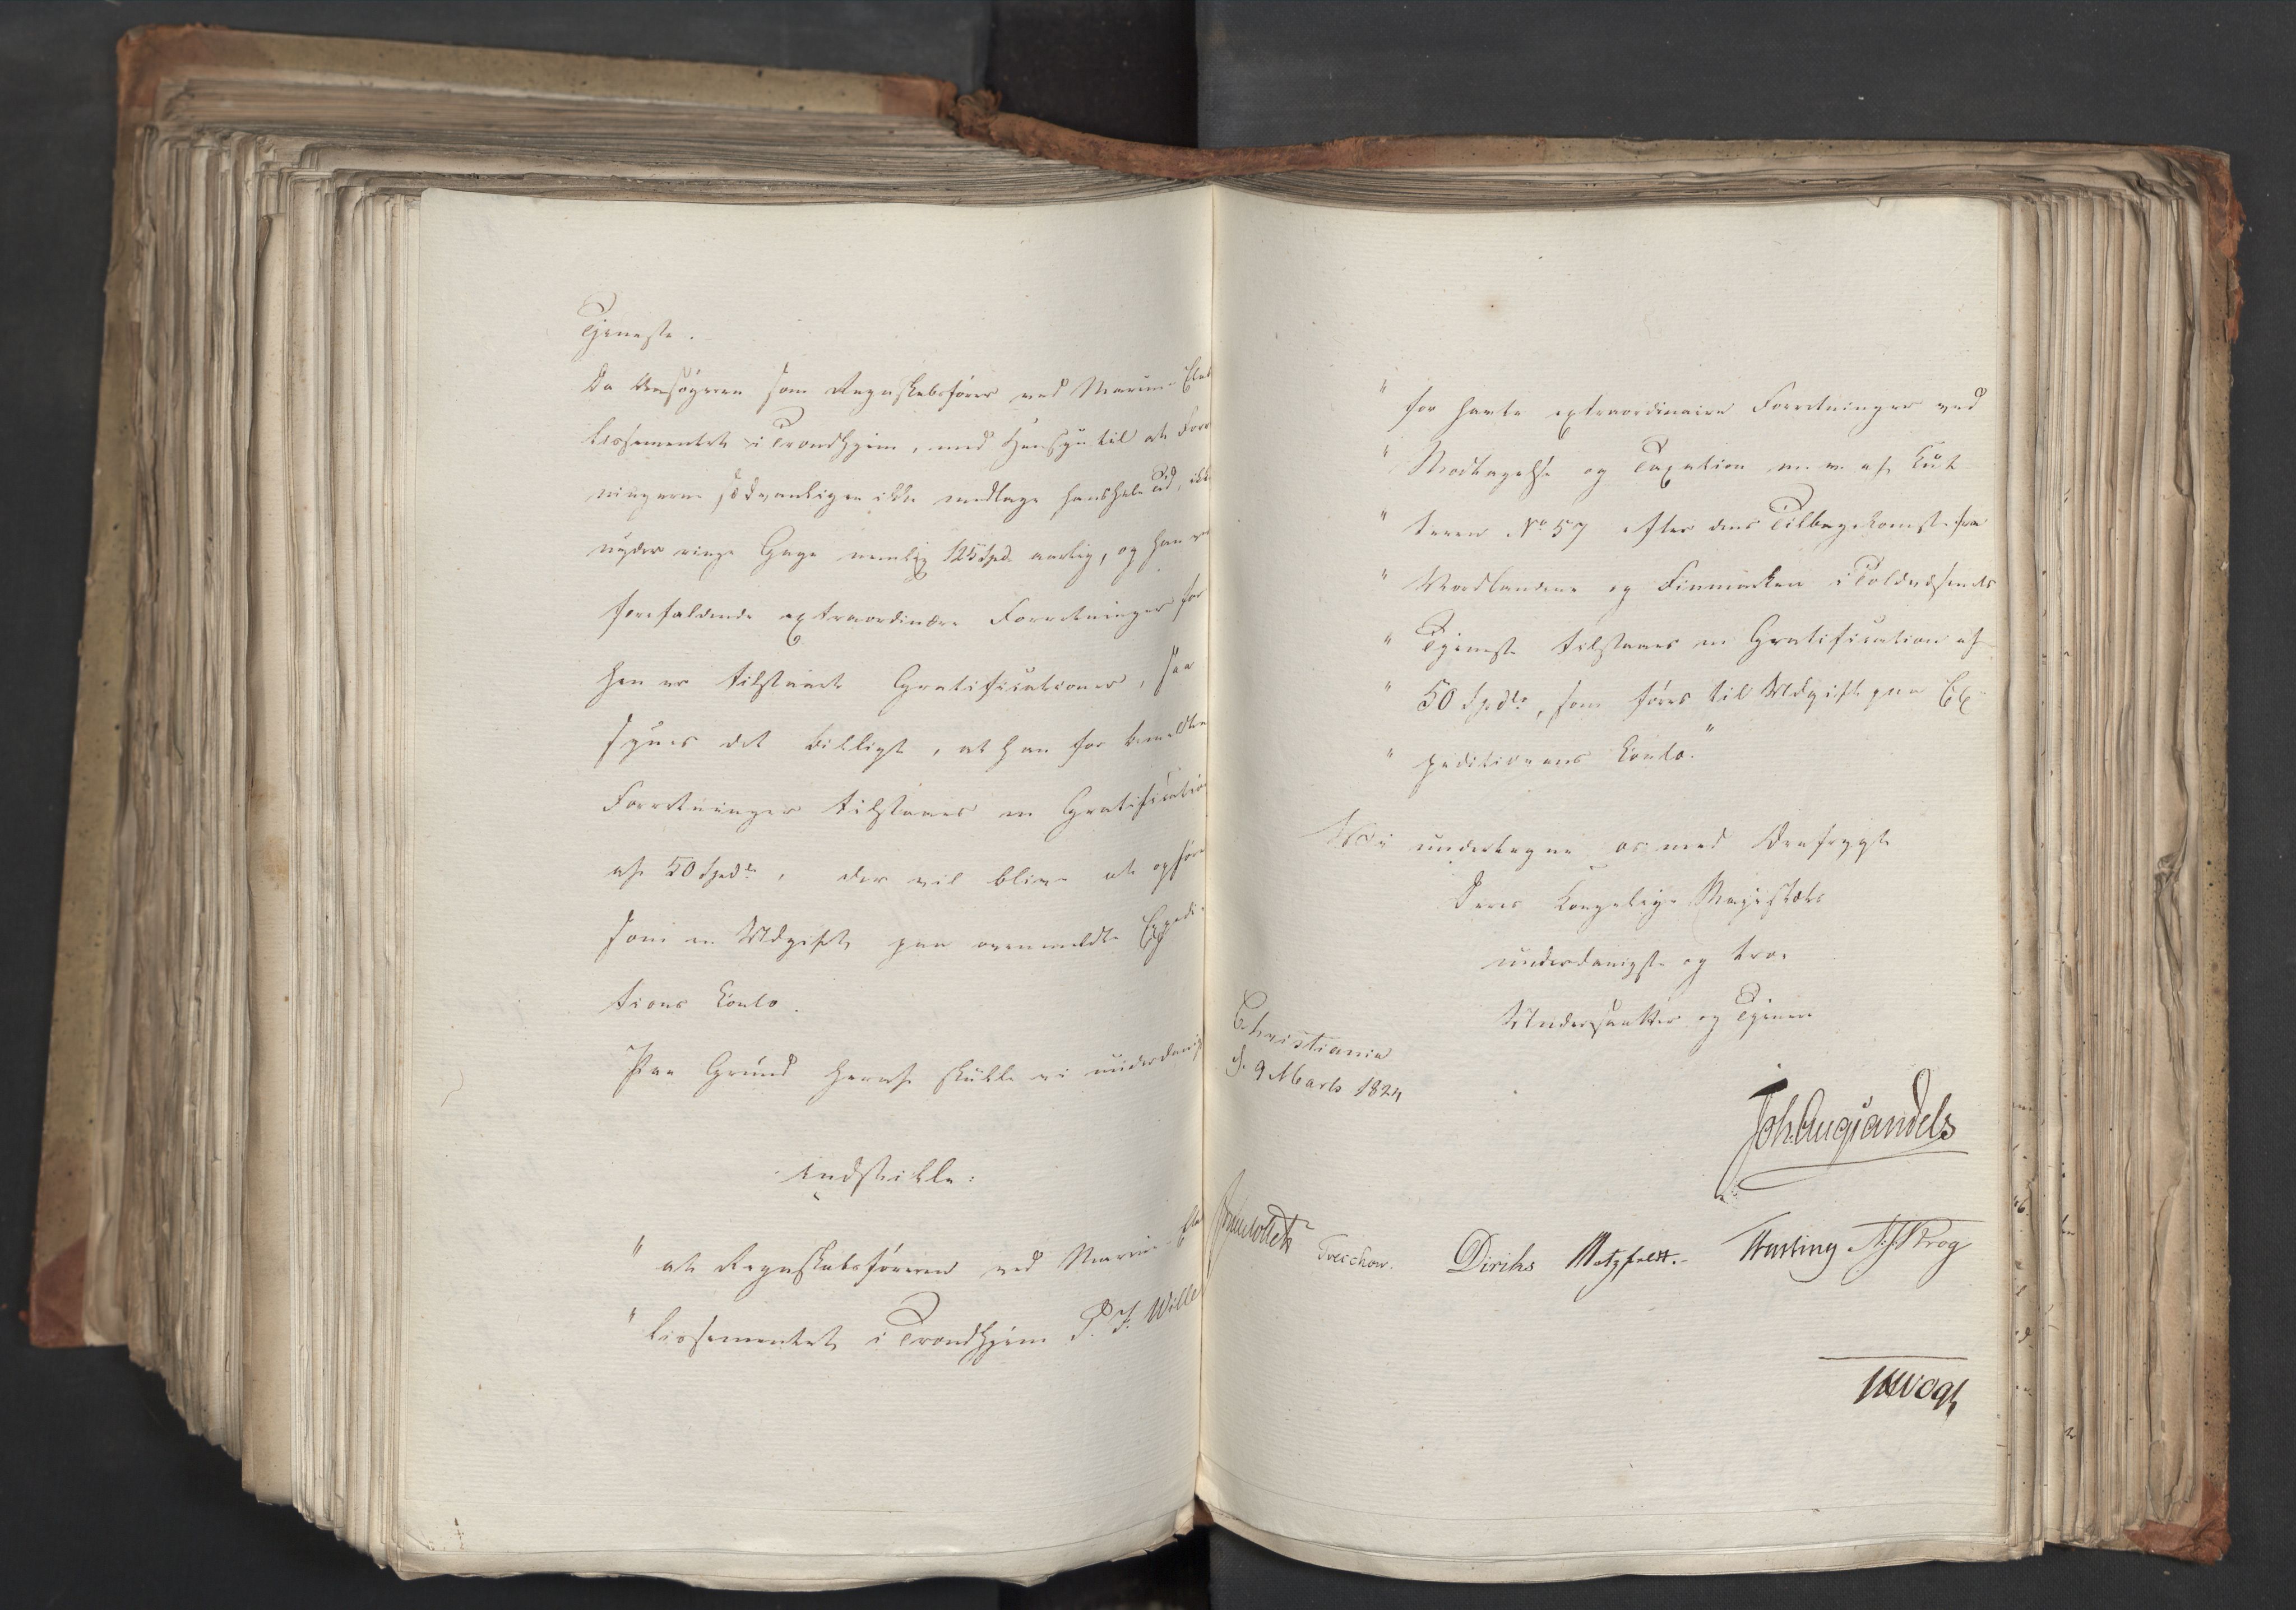 Tjeneste.
Da Ansøgeren som Regnskabsfører ved Marine-Etab
lissementet i Trondhjem, med Hensyn til at Forret
ningerne sædvanligen ikke medtage hans hele Tid, ikk
nyder ringe Gage nemlig 125 Spd. aarlig, og han ve
forefaldende extraordinære Forretninger for
hen er tilstaaet Gratificationer, saa
synes det billigt, at han for bemeldte
Forretninger tilstaaes en Gratification
af 50 Spdlr, der vil blive at opføre
som en Udgift paa ovenmeldte Expedi-
tions Conto.
Paa Grund heraf skulle vi underdanigst
indstille:
" at Regnskabsføreren ved Marine-Etab
" lissementet i Trondhjem P. F. Wille
" for havte extraordinaire Forretninger ved
" Modtagelse og Taxation m. m. af Cut
" teren No 57 efter dens Tilbagekomst fra
" Nordlandene og Finmarken i Toldvæsenets
" Tjeneste tilstaaes en Gratification af
" 50 Spdlr, som føres til Udgift paa Ex-
" peditionens Conto."
Vi undertegne os med Ærefrygt
Deres Kongelige Majestæts
underdanigste og troe
Undersaatter og Tjenere
Christiania
d. 9 Marts 1824
Joh. Aug. Sandels
Jonas Collett Treschow. Diriks Motzfeldt. Fasting A. Krog
Vogt